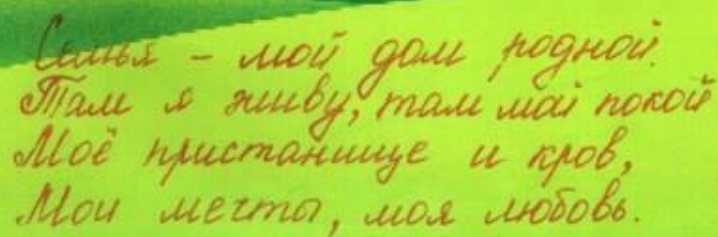 Семья - мой дом родной.
Там я живу, там мой покой
Моё пристанище и кров,
Мои мечты, моя любовь.